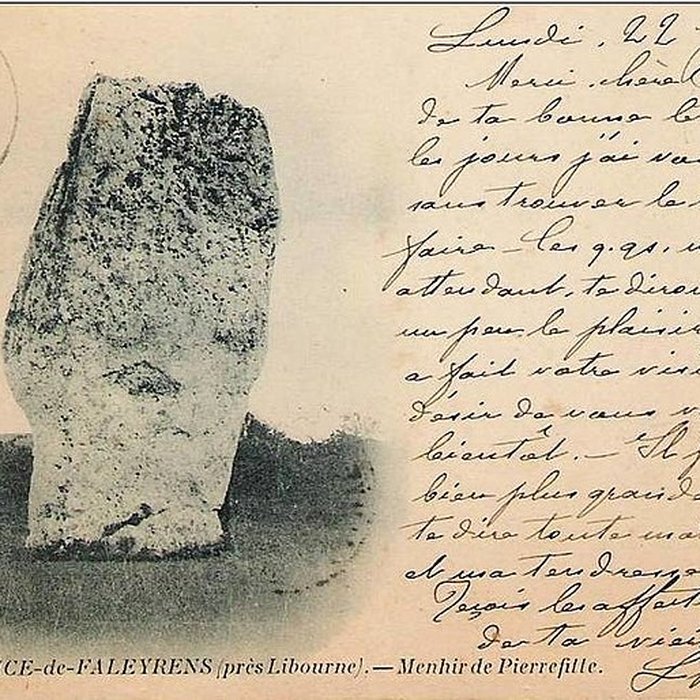 Lundi, 22
Merci, chère
de ta bonne le
les jours j'ai vo
sans trouver le
faire – Ces q.qs.
attendant, te diro
un peu le plaisir
a fait votre visi
désir de vous
bientôt. – Il p
bien plus grand
te dire toute ma
et ma tendresse
Reçois les affect
de ta vieil
CE-de-FALEYRENS (près Libourne). — Menhir de Pierrefitte.